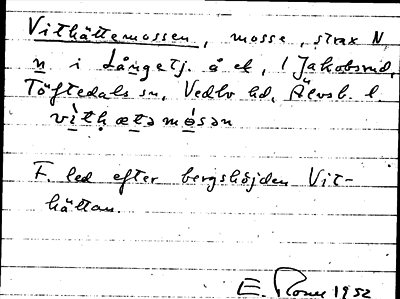 Vithättemossen, mosse, strax N
n i Långetj. å ek, 1 Jakobsrud,
Töftedals sn, Vedbo hd, Älvsb. l.
vìthætəmòsən
F. led efter bergshöjden Vit-
hättan.
E. 1952